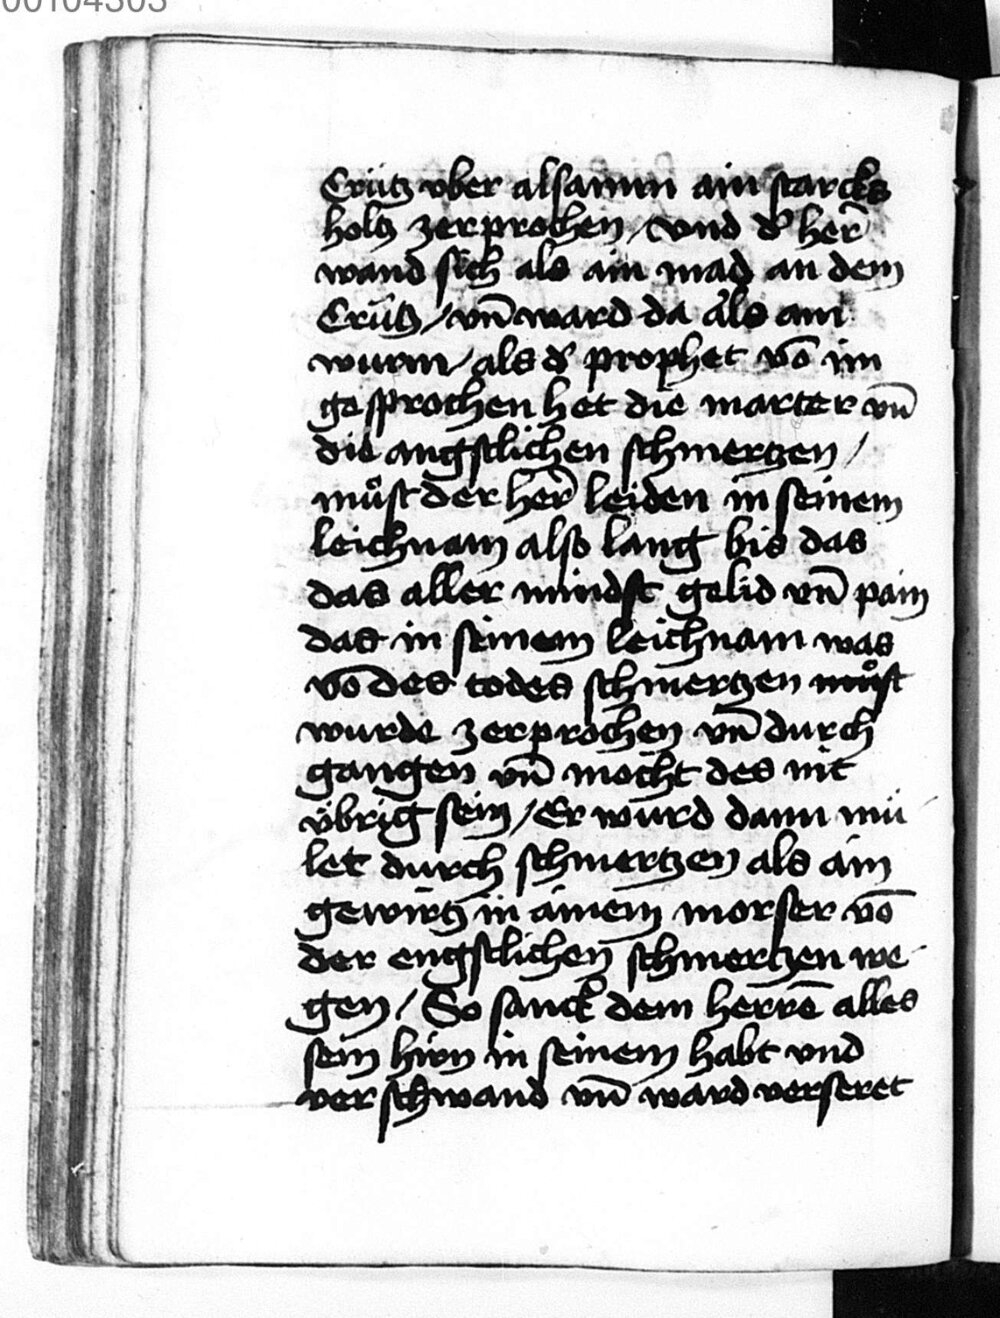 00104303
Crütz vber alsamm ain starcks
holtz zerprochen / vnd d' her̄
wand sich als ain mad an dem
Crütz / vn̄ ward da als ain
wurm / als d' prophet vō im
gesprochen het die marter vn̄
die angstlichen schmertzen /
mu̍st der her̄ leiden in seinem
leichnam also lang bis das
das aller mindst gelid vn̄ pain
das in seinem leichnam was
vō des todes schmertzen mu̍st
wurde zerprochen vn̄ durch
gangen vn̄ mocht des nit
übrig sein / Er wurd dann mü
let durch schmertzen als ain
gewirtz in ainem morser vō
der engstlichen schmertzen we
gen / So sanck dem herrē alles
sein hirn in seinem habt vnd
verschwand vn̄ ward verseret